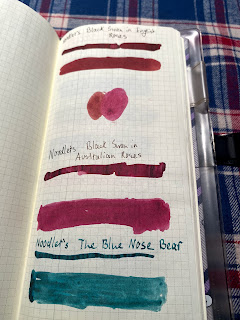 Noodler's Black Swan in English
Roses
Noodler's Black Swan in
Australian Roses
Noodler's The Blue Nose Bear